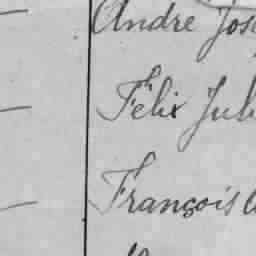 André Jos
Félix Juli
François